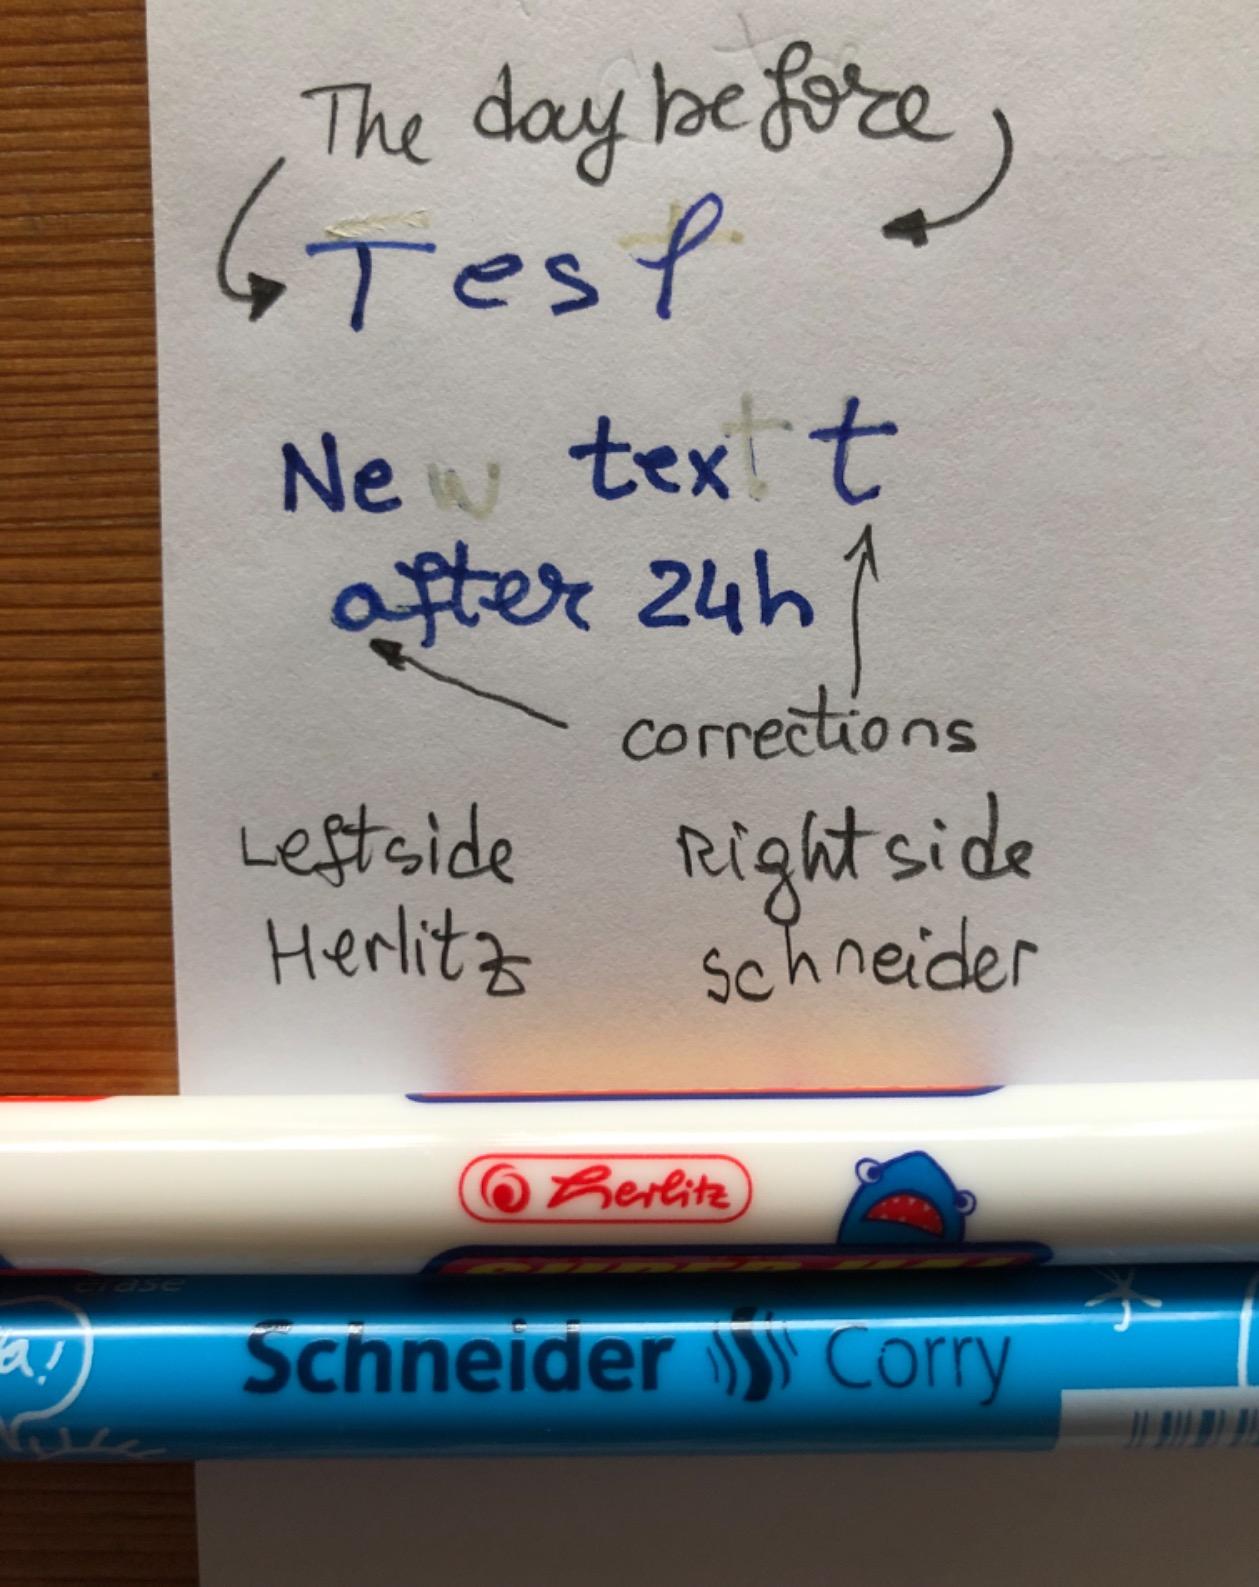 The day before
Test
New text t
after 24h
corrections
Leftside Rightside
Herlitz schneider
herlitz
erase
a!
Schneider Corry